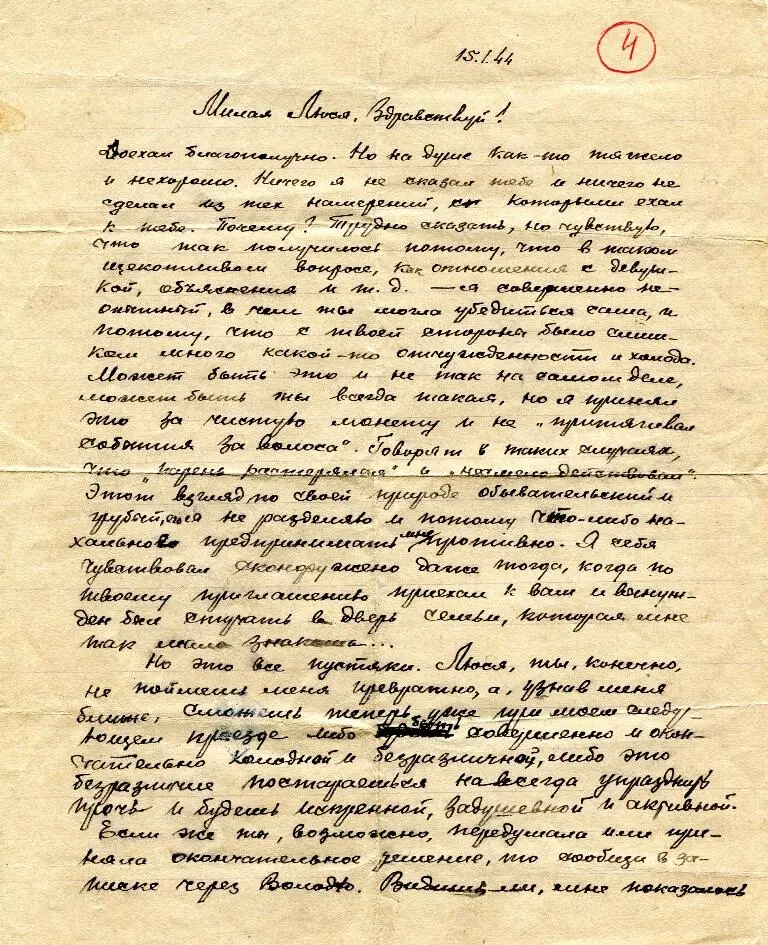 15.1.44
4
Милая Люся, Здравствуй!
Доехал благополучно. Но на душе как-то тяжело
и нехорошо. Ничего я не сказал тебе и ничего не
сделал из тех намерений, с которыми ехал
к тебе. Почему? Трудно сказать, но чувствую,
что так получилось потому, что в таком
щекотливом вопросе, как отношения с девуш-
кой, объяснения и т.д. — я совершенно не-
опытный, в чем ты могла убедиться сама, и
потому, что с твоей стороны было слиш-
ком много какой-то отчужденности и холода.
Может быть это и не так на самом деле,
может быть ты всегда такая, но я принял
это за чистую монету и не „притягивал
события за волоса". Говорят в таких случаях,
что „парень растерялся" и „несмело действовал".
Этот взгляд по своей природе обывательский и
грубый, я не разделяю и потому что-либо на-
хального предпринимать мне противно. Я себя
чувствовал сконфужено даже тогда, когда по
твоему приглашению приехал к вам и вынуж-
ден был стучать в дверь семьи, которая мне
так мало знакома...
Но это все пустяки. Люся, ты, конечно,
не поймешь меня превратно, а, узнав меня
ближе, сможешь теперь уже при моем следу-
ющем приезде либо быть совершенно и окон-
чательно холодной и безразличной, либо это
безразличие постараешься навсегда упразднить
прочь и будешь искренной, задушевной и активной.
Если же ты, возможно, передумала или при-
няла окончательное решение, то сообщи в за-
писке через Володю. Видишь ли, мне показалось